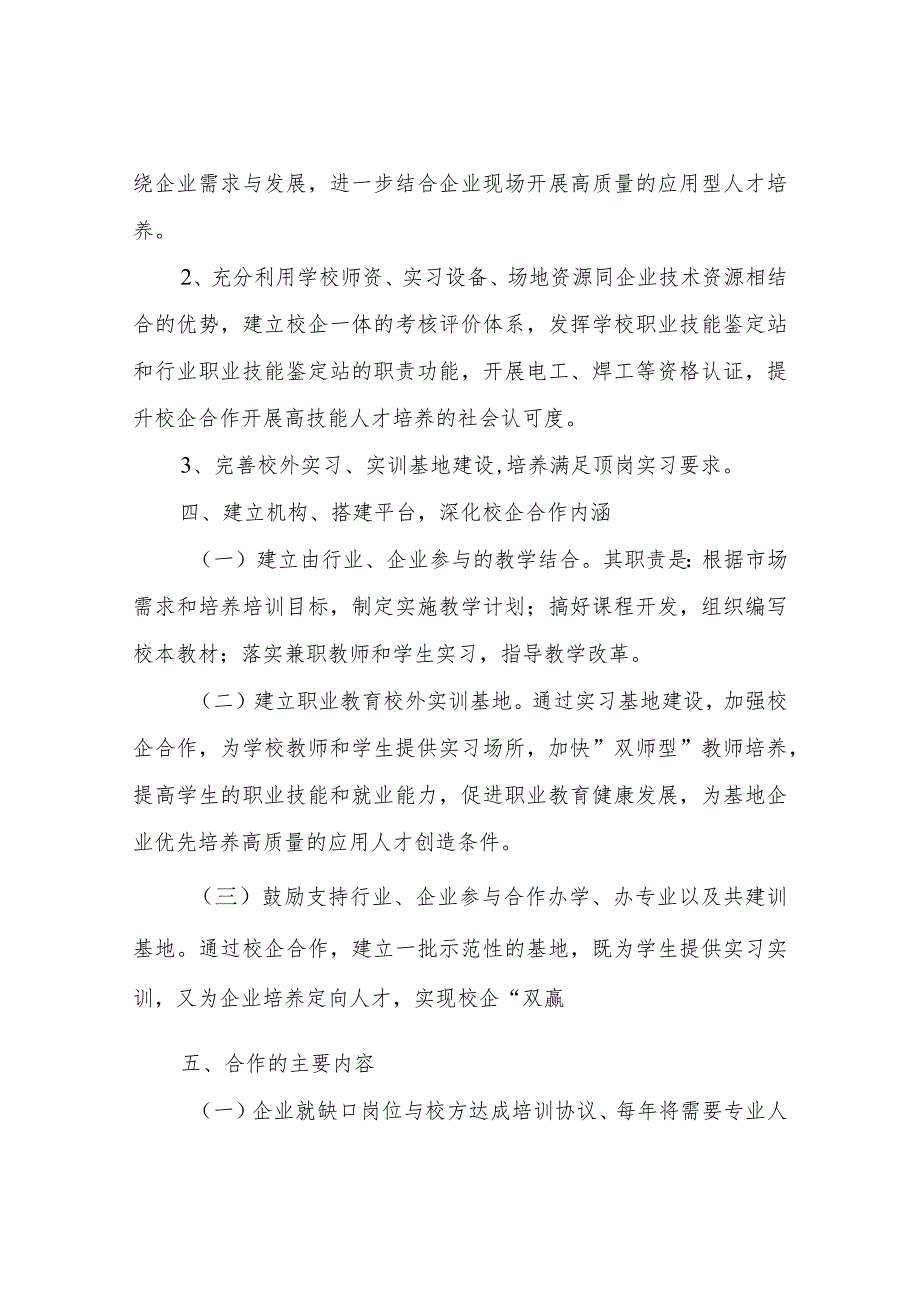 绕企业需求与发展，进一步结合企业现场开展高质量的应用型人才培
养。
2、充分利用学校师资、实习设备、场地资源同企业技术资源相结
合的优势，建立校企一体的考核评价体系，发挥学校职业技能鉴定站
和行业职业技能鉴定站的职责功能，开展电工、焊工等资格认证，提
升校企合作开展高技能人才培养的社会认可度。
3、完善校外实习、实训基地建设,培养满足顶岗实习要求。
四、建立机构、搭建平台，深化校企合作内涵
（一）建立由行业、企业参与的教学结合。其职责是：根据市场
需求和培养培训目标，制定实施教学计划；搞好课程开发，组织编写
校本教材；落实兼职教师和学生实习，指导教学改革。
（二）建立职业教育校外实训基地。通过实习基地建设，加强校
企合作，为学校教师和学生提供实习场所，加快”双师型”教师培养，
提高学生的职业技能和就业能力，促进职业教育健康发展，为基地企
业优先培养高质量的应用人才创造条件。
（三）鼓励支持行业、企业参与合作办学、办专业以及共建训
基地。通过校企合作，建立一批示范性的基地，既为学生提供实习实
训，又为企业培养定向人才，实现校企“双赢
五、合作的主要内容
（一）企业就缺口岗位与校方达成培训协议、每年将需要专业人